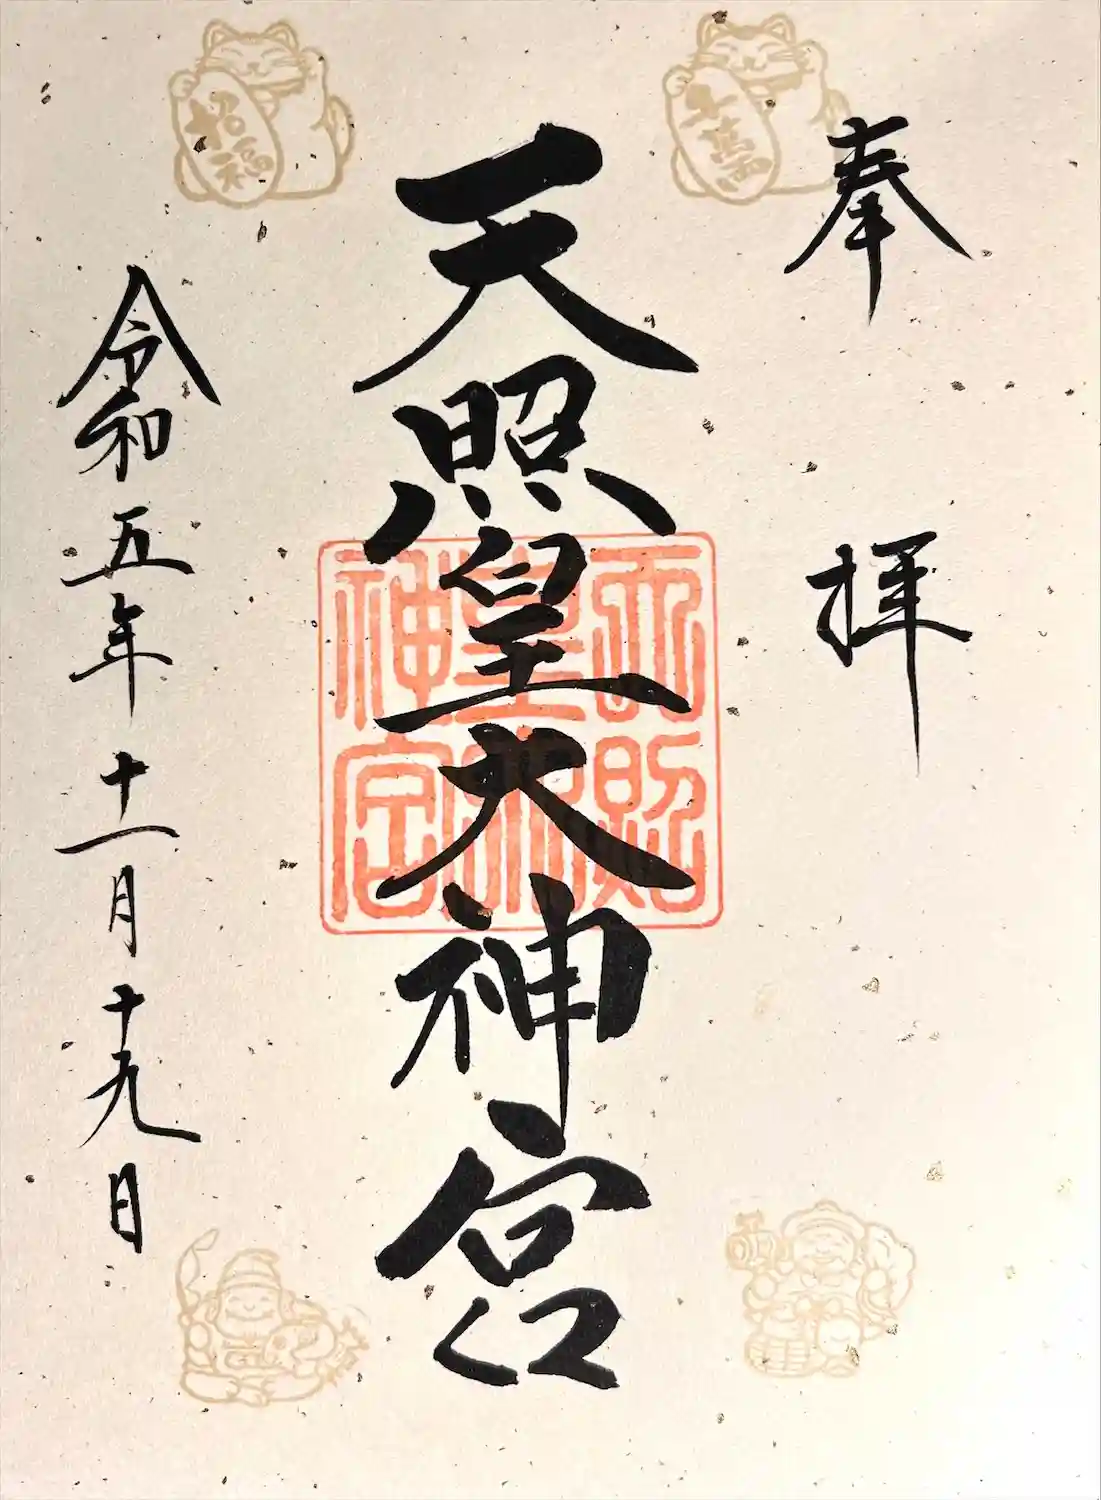 奉拝
天照皇大神宮
天照
皇大
神宮
令和五年十一月十九日
招福